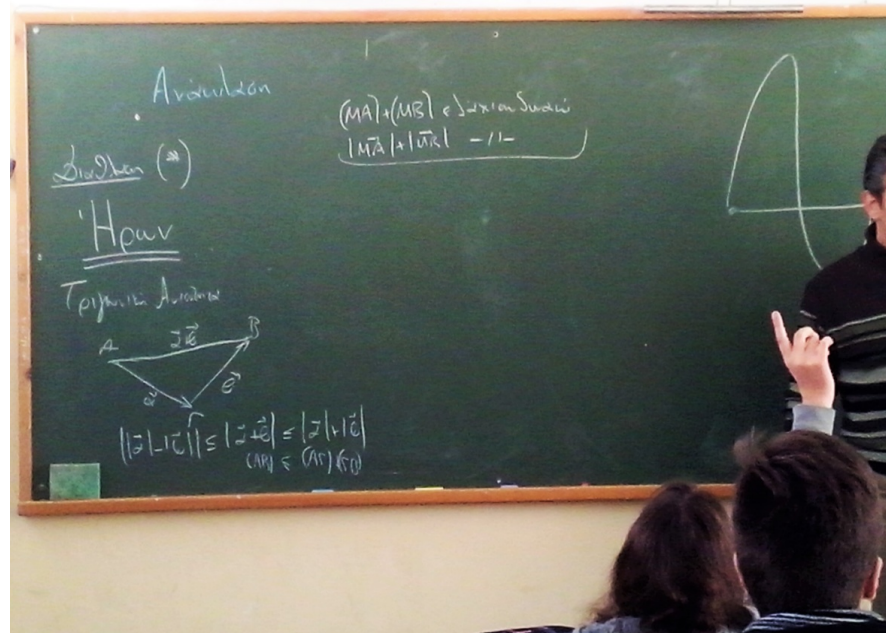 Ανάκλαση
(MA)+(MB) ελάχιστο δυνατό
|M⃗A|+|M⃗B| -//-
Διάθλαση (*)
Ήρων
Τριγωνική Ανισότητα
A
B
α⃗
β⃗
Γ
||α⃗|-|β⃗|| ≤ |α⃗+β⃗| ≤ |α⃗|+|β⃗|
(AB) ≤ (AΓ)+(ΓB)